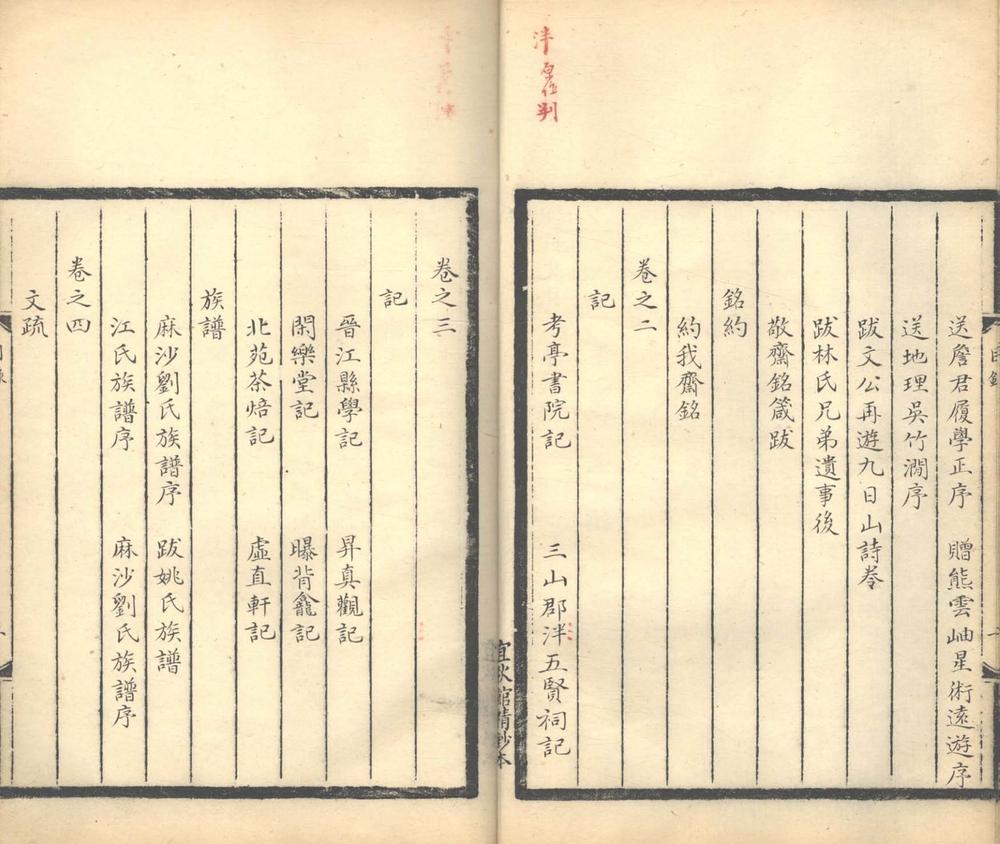 送詹君履學正序　贈熊雲岫星術遠遊序
送地理吳竹澗序
跋文公再遊九日山詩卷
跋林氏兄弟遺事後
敬齋銘箴跋
銘約
約我齋銘
卷之二
記
考亭書院記　三山郡泮五賢祠記
宜秋館精鈔本
卷之三
記
晉江縣學記　昇真觀記
閑樂堂記　曝背龕記
北苑茶焙記　虛直軒記
族譜
麻沙劉氏族譜序　跋姚氏族譜
江氏族譜序　麻沙劉氏族譜序
卷之四
文疏
目錄
泮
判